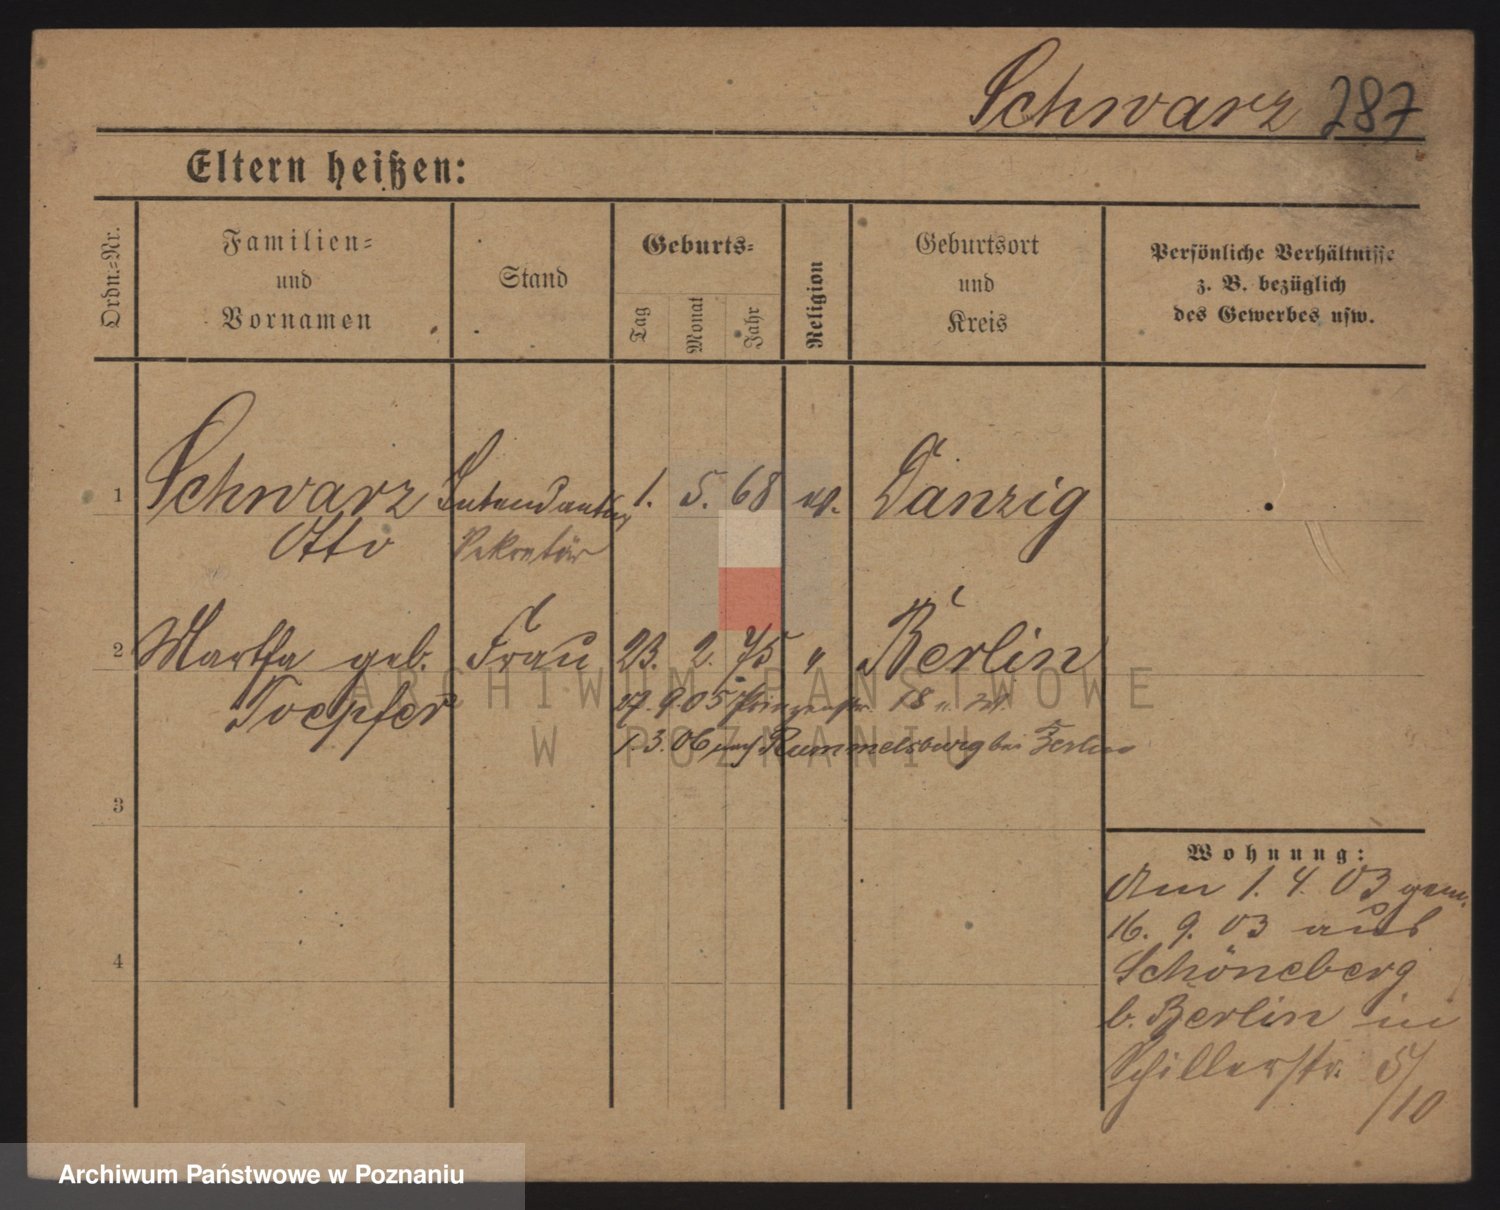 Schwarz 287
Eltern heißen:
Ordn.-Nr.
Familien-
und
Vornamen
Stand
Geburts-
Tag
Monat
Jahr
Religion
Geburtsort
und
Kreis
Persönliche Verhältnisse
z. B. bezüglich
des Gewerbes usw.
1 Schwarz 1. 5. 68 ev. Danzig
Otto Sekretär
2 Martha geb. Frau 23. 2. 75 " Berlin
Toepfer 27. 9. 05 18
1. 3. 06 nach Rummelsburg bei Berlin
3
4
Wohnung:
Am 1. 4. 03 gem.
16. 9. 03 aus
Schöneberg
b. Berlin in
Schillerstr. 5/
/10
ARCHIWUM PAŃSTWOWE
W POZNANIU
Archiwum Państwowe w Poznaniu